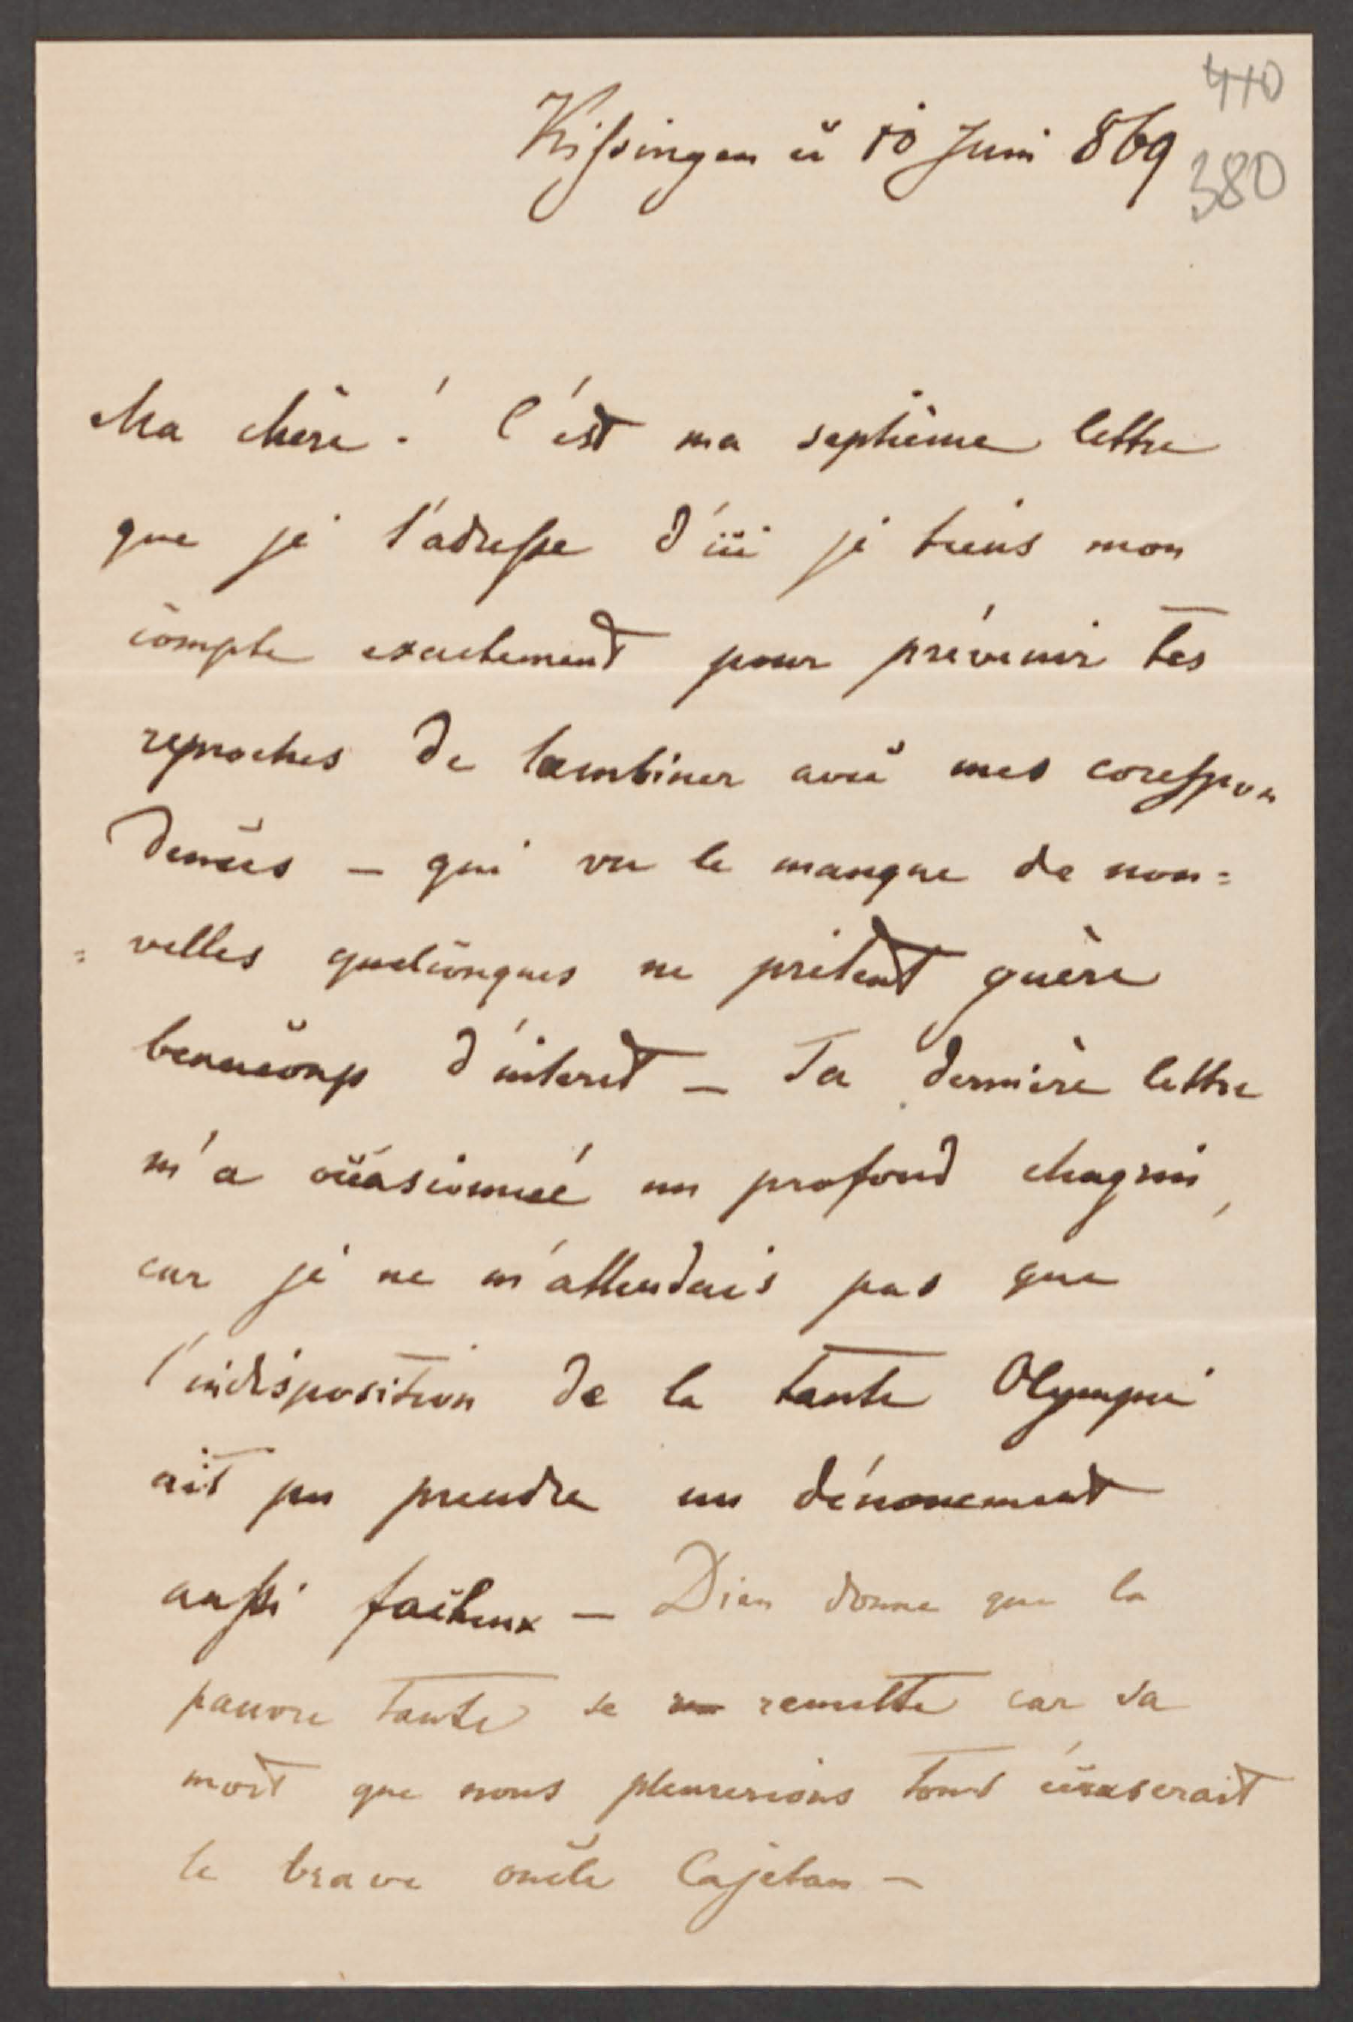 410
Kissingen ce 10 Juni 869
380
Ma chère! C'est ma septième lettre
que je t'adresse d'ici je tiens mon
compte exactement pour prévenir tes
reproches de lambiner avec mes correspon
dences – qui vu le manque de nou=
=velles quelconques ne prêtent guère
beaucoup d'interet – Ta dernière lettre
m'a occasionneé un profond chagrin,
car je ne m'attendais pas que
l'indisposition de la tante Olympie
ait pu prendre un dénouement
aussi facheux – Dieu donne que la
pauvre tante se remette car sa
mort que nous pleurerions tous écraserait
le brave oncle Cajetan –